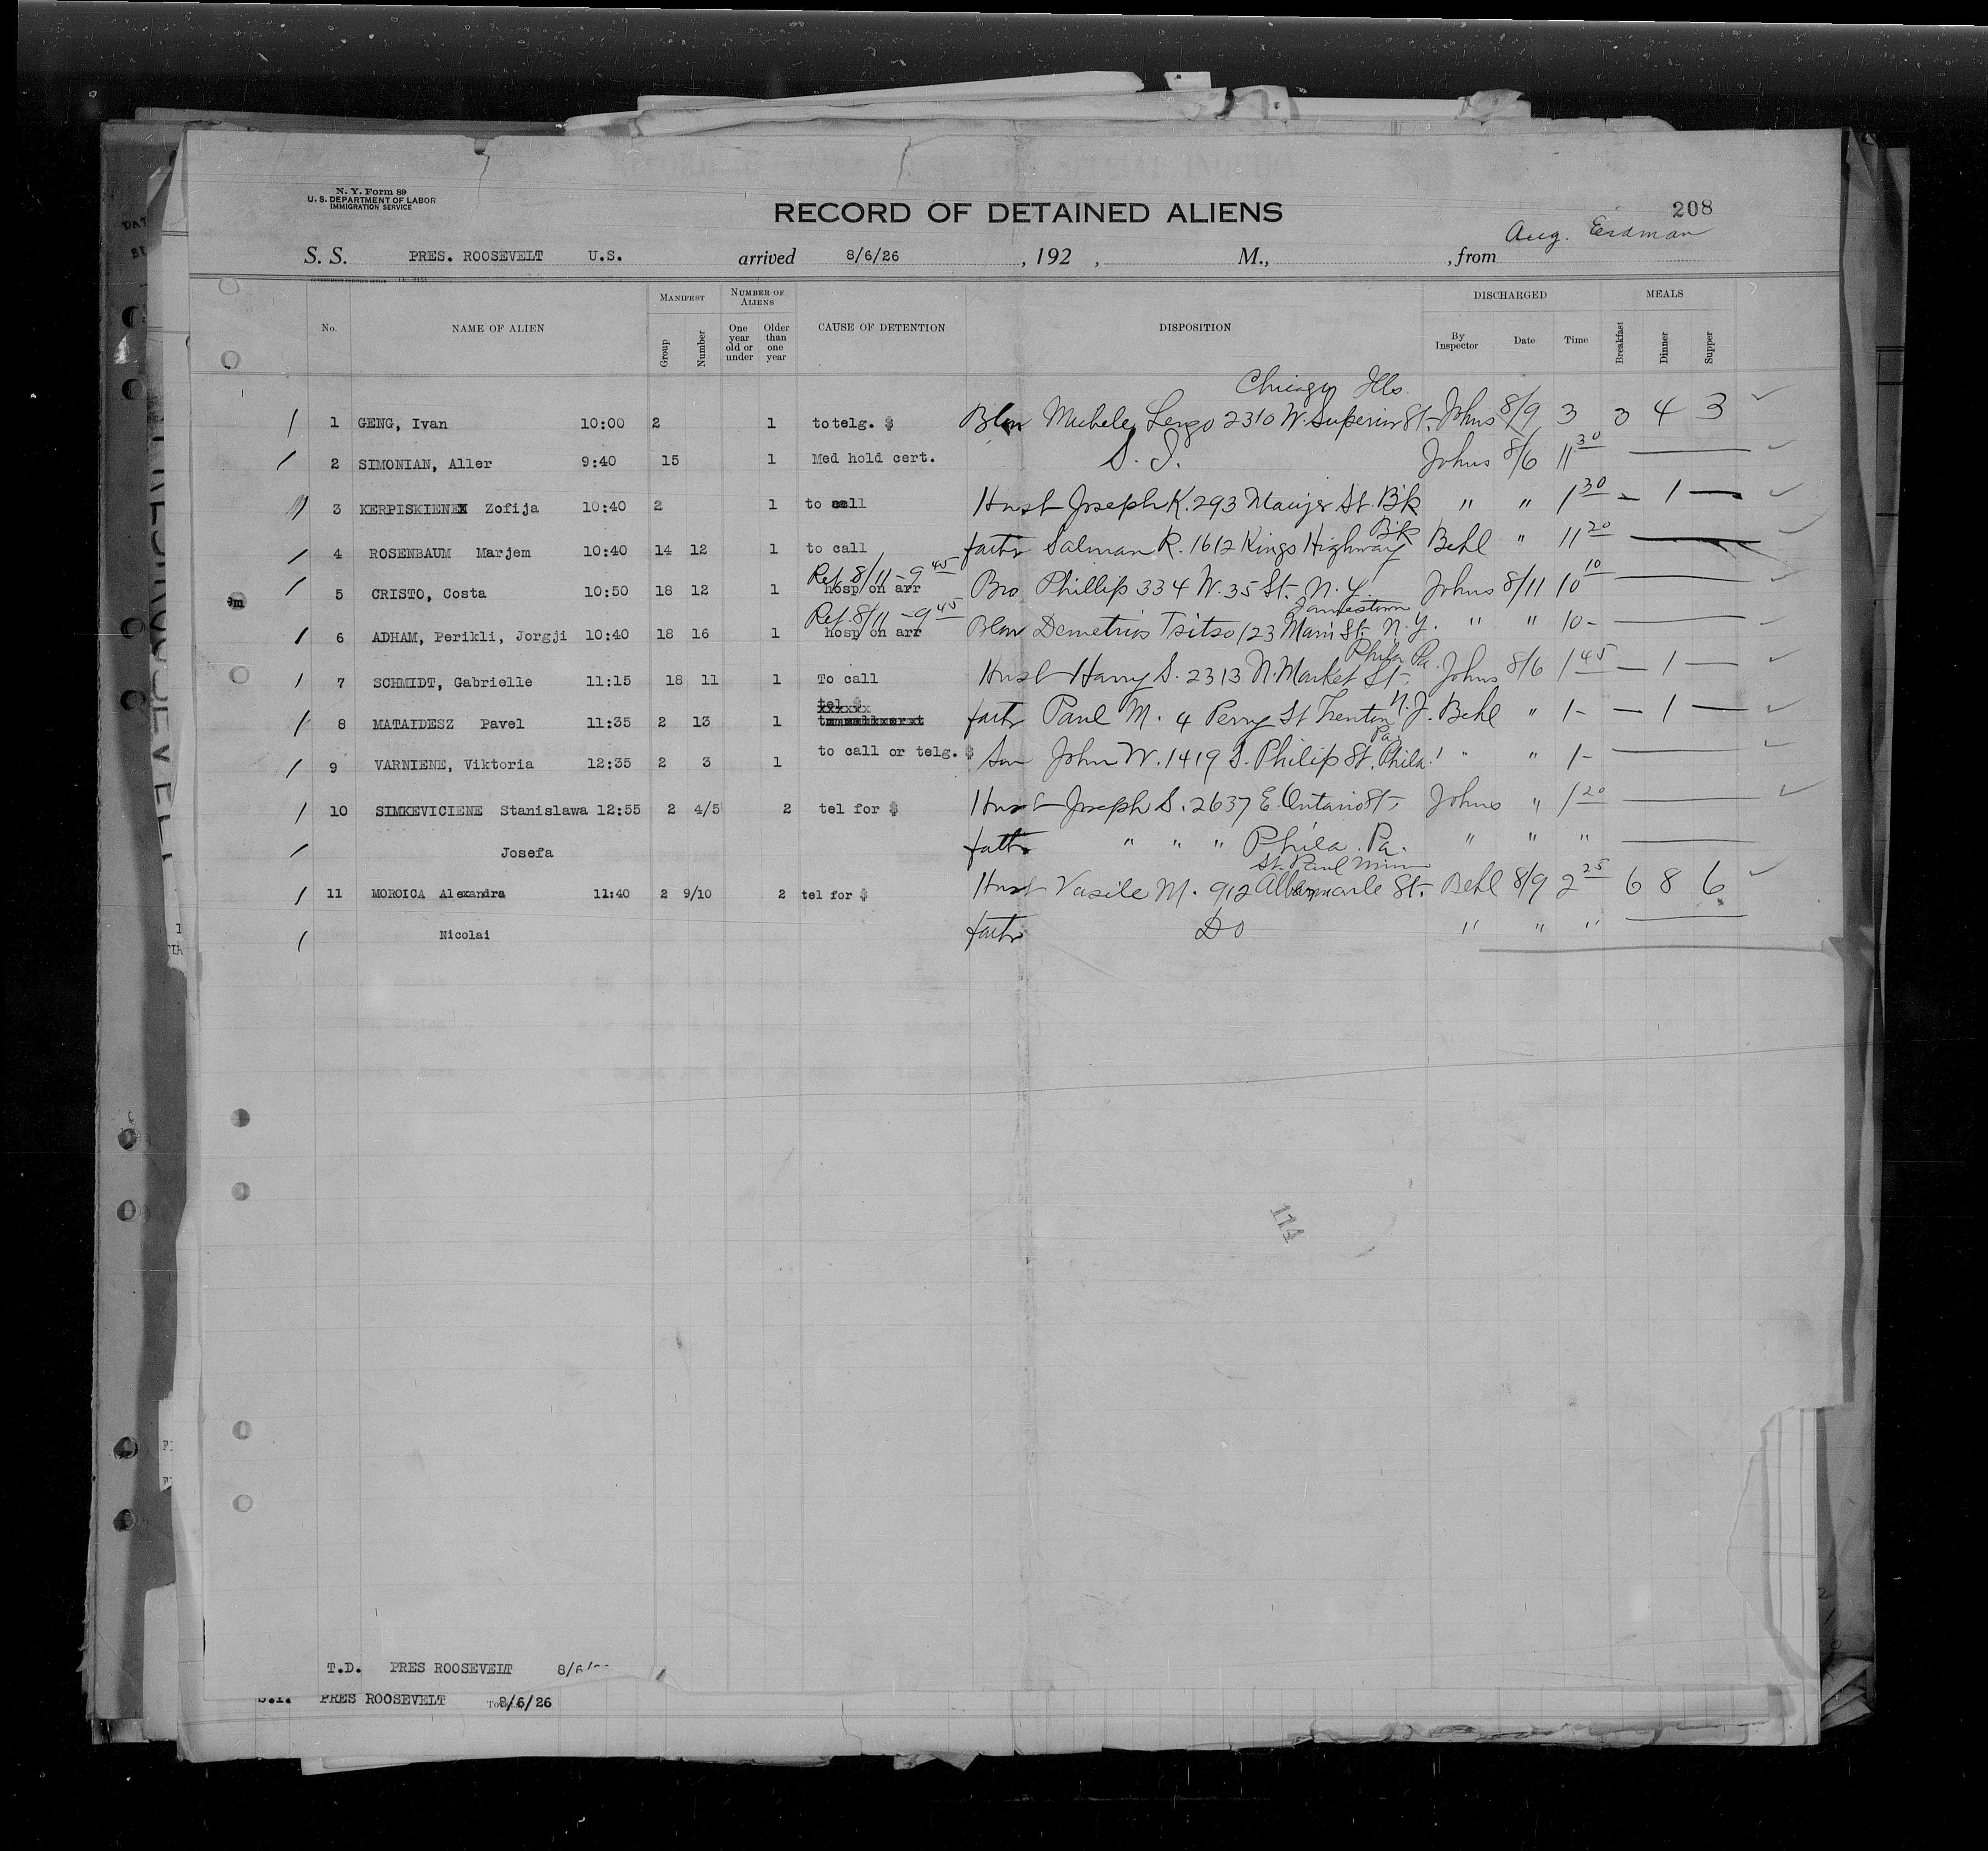 N. Y. Form 89
U. S. DEPARTMENT OF LABOR
IMMIGRATION SERVICE
RECORD OF DETAINED ALIENS
208
Aug. Erdman
S. S. PRES. ROOSEVELT U.S. arrived 8/6/26 , 192 , M., , from
No. NAME OF ALIEN MANIFEST Group Number NUMBER OF ALIENS One year old or under Older than one year CAUSE OF DETENTION DISPOSITION DISCHARGED By Inspector Date Time MEALS Breakfast Dinner Supper
Chicago Ills.
1 GENG, Ivan 10:00 2 1 to telg. $ Michele 2310 W. Superior St. Johns 8/9 3 3 4 3
2 SIMONIAN, Aller 9:40 15 1 Med hold cert. S. I. Johns 8/6 11 30
3 KERPISKIENEX Zofija 10:40 2 1 to call Husb Joseph K. 293 Maujer St. Bk " " 1 30 – 1 –
Bk
4 ROSENBAUM Marjem 10:40 14 12 1 to call fath Salman R. 1612 Kings Highway Behl " 11 20
Ref. 8/11 - 9 45
5 CRISTO, Costa 10:50 18 12 1 hosp on arr Bro Phillip 334 W. 35 St. N. Y. Johns 8/11 10 10
Ref. 8/11 - 9 45 Jamestown
6 ADHAM, Perikli, Jorgji 10:40 18 16 1 hosp on arr Blaw Demetrios Tsitso 123 Main St. N. Y. " " 10 -
Phila Pa.
7 SCHMIDT, Gabrielle 11:15 18 11 1 To call Husb Harry S. 2313 N. Market St. Johns 8/6 1 45 – 1 –
tel $
8 MATAIDESZ Pavel 11:35 2 13 1 fath Paul M. 4 Perry St Trenton N. J. Behl " 1 - – 1 –
Pa.
9 VARNIENE, Viktoria 12:35 2 3 1 to call or telg. $ Son John W. 1419 S. Philip St. Phila. " " 1 -
10 SIMKEVICIENE Stanislawa 12:55 2 4/5 2 tel for $ Husb Joseph S. 2637 E. Ontario St. Johns " 1 20
Josefa fath " " " Phila. Pa. " " "
St. Paul Minn
11 MOROICA Alexandra 11:40 2 9/10 2 tel for $ Husb Vasile M. 912 Albemarle St. Behl 8/9 2 25 6 8 6
Nicolai fath Do " " "
114
T.D. PRES ROOSEVELT 8/6/
S.I. PRES ROOSEVELT 8/6/26